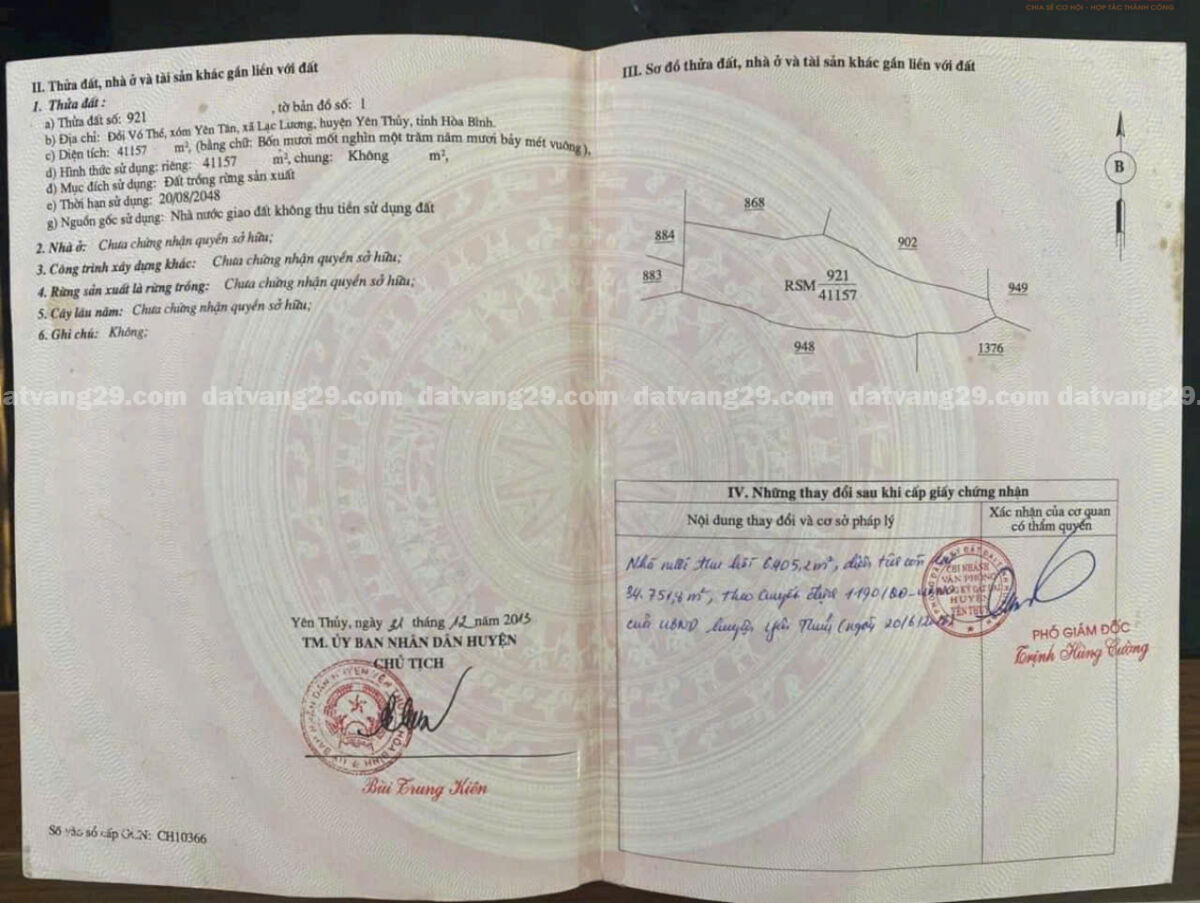 CHIA SẺ CƠ HỘI - HỢP TÁC THÀNH CÔNG
II. Thửa đất, nhà ở và tài sản khác gắn liền với đất
1. Thửa đất:
a) Thửa đất số: 921 , tờ bản đồ số: 1
b) Địa chỉ: Đồi Vó Thề, xóm Yên Tân, xã Lạc Lương, huyện Yên Thủy, tỉnh Hòa Bình.
c) Diện tích: 41157 m², (bằng chữ: Bốn mươi mốt nghìn một trăm năm mươi bảy mét vuông),
d) Hình thức sử dụng: riêng: 41157 m², chung: Không m²,
đ) Mục đích sử dụng: Đất trồng rừng sản xuất
e) Thời hạn sử dụng: 20/08/2048
g) Nguồn gốc sử dụng: Nhà nước giao đất không thu tiền sử dụng đất
2. Nhà ở: Chưa chứng nhận quyền sở hữu;
3. Công trình xây dựng khác: Chưa chứng nhận quyền sở hữu;
4. Rừng sản xuất là rừng trồng: Chưa chứng nhận quyền sở hữu;
5. Cây lâu năm: Chưa chứng nhận quyền sở hữu;
6. Ghi chú: Không;
datvang29.com datvang29.com datvang29.com datvang29.com datvang29.com datvang29.
Yên Thủy, ngày 21 tháng 12 năm 2013
TM. ỦY BAN NHÂN DÂN HUYỆN
CHỦ TỊCH
Bùi Trung Kiên
Số vào sổ cấp GCN: CH10366
III. Sơ đồ thửa đất, nhà ở và tài sản khác gắn liền với đất
B
868
884
902
883
RSM 921
41157
949
948
1376
IV. Những thay đổi sau khi cấp giấy chứng nhận
Nội dung thay đổi và cơ sở pháp lý
Xác nhận của cơ quan
có thẩm quyền
Nhà nước thu hồi 6405,2m², diện tích còn lại
34.751,8m², theo Quyết định 1190/QĐ-UBND
của UBND huyện Yên Thủy (ngày
CHI NHÁNH
VĂN PHÒNG
HUYỆN
YÊN THỦY
PHÓ GIÁM ĐỐC
Trịnh Hùng Cường